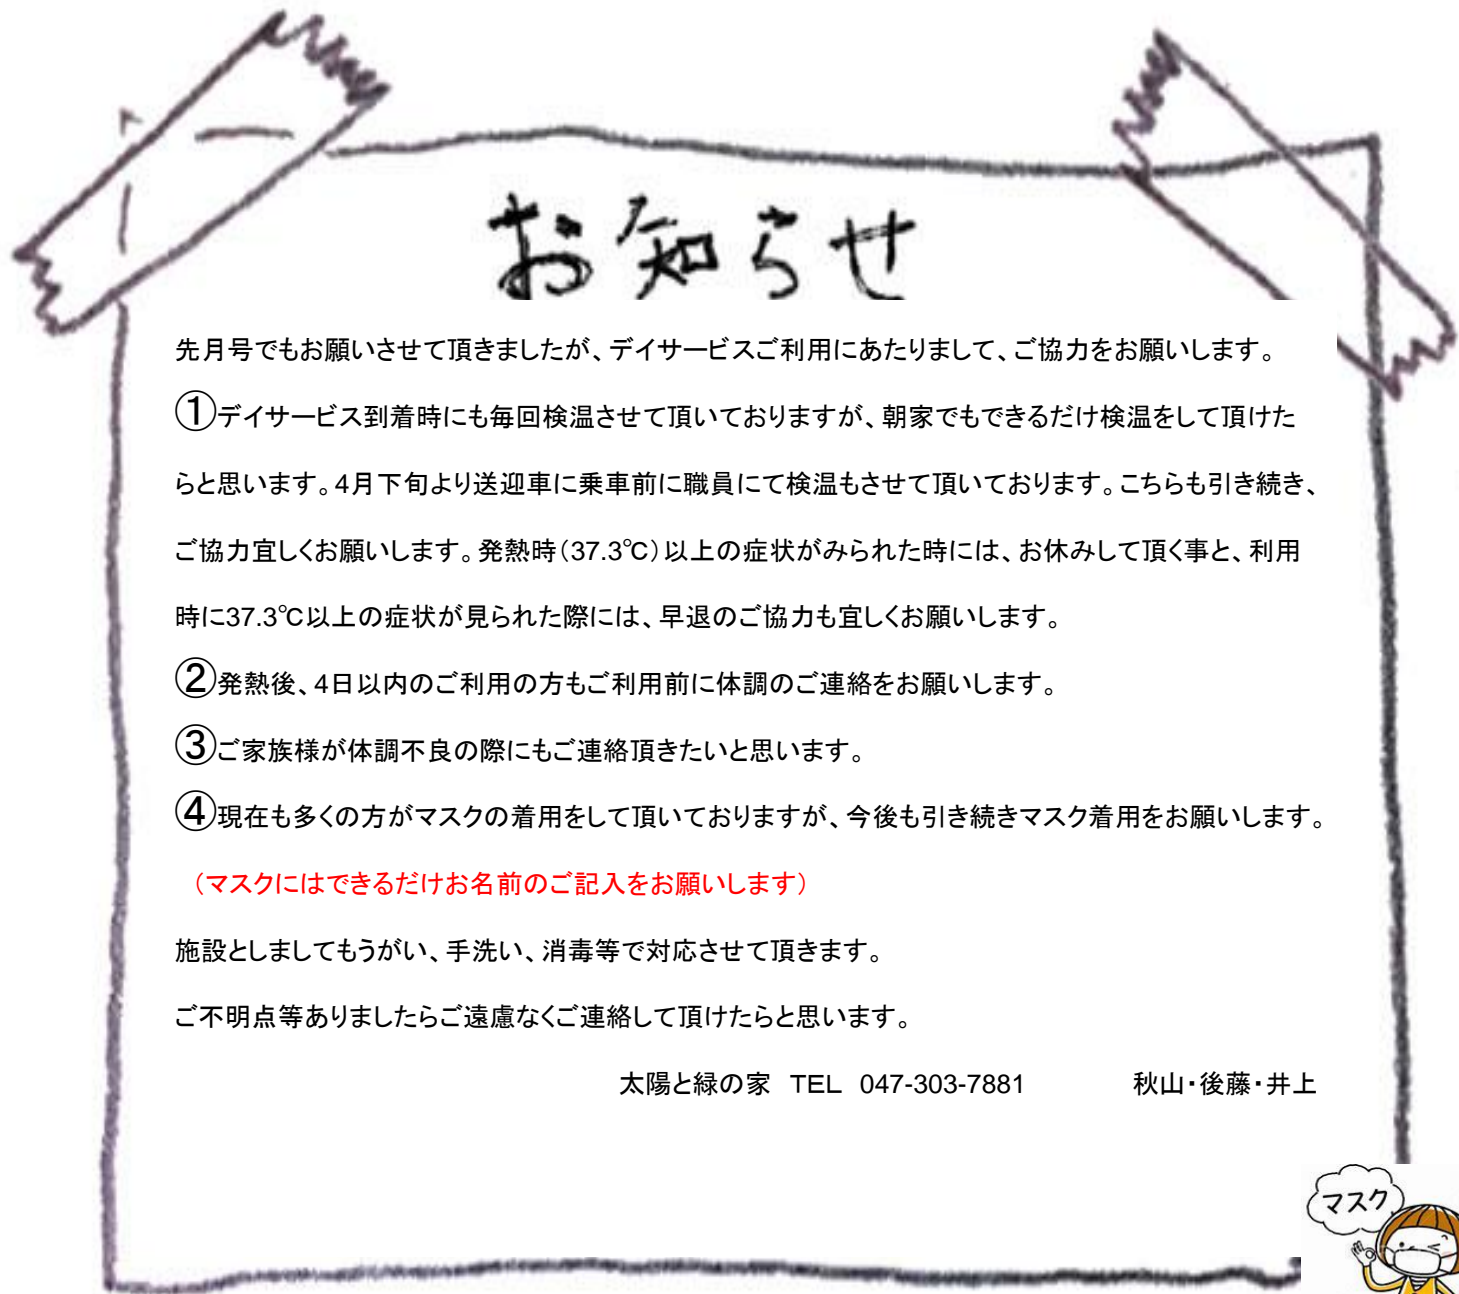 お知らせ
先月号でもお願いさせて頂きましたが、デイサービスご利用にあたりまして、ご協力をお願いします。
①デイサービス到着時にも毎回検温させて頂いておりますが、朝家でもできるだけ検温をして頂けた
らと思います。4月下旬より送迎車に乗車前に職員にて検温もさせて頂いております。こちらも引き続き、
ご協力宜しくお願いします。発熱時(37.3℃)以上の症状がみられた時には、お休みして頂く事と、利用
時に37.3℃以上の症状が見られた際には、早退のご協力も宜しくお願いします。
②発熱後、4日以内のご利用の方もご利用前に体調のご連絡をお願いします。
③ご家族様が体調不良の際にもご連絡頂きたいと思います。
④現在も多くの方がマスクの着用をして頂いておりますが、今後も引き続きマスク着用をお願いします。
(マスクにはできるだけお名前のご記入をお願いします)
施設としましてもうがい、手洗い、消毒等で対応させて頂きます。
ご不明点等ありましたらご遠慮なくご連絡して頂けたらと思います。
太陽と緑の家 TEL 047-303-7881 秋山・後藤・井上
マスク